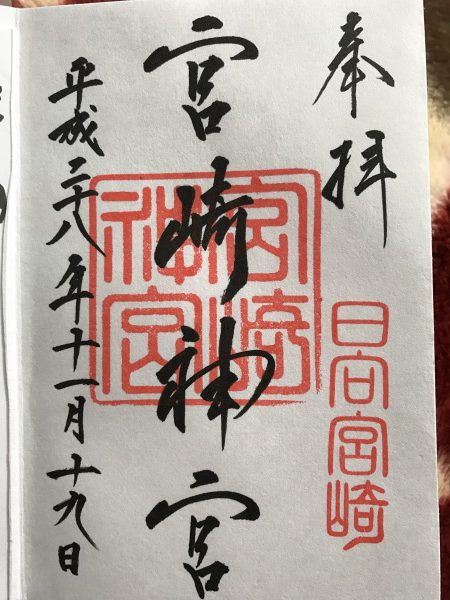 奉拝
日向宮崎
宮崎神宮
宮崎神宮
平成二十八年十一月十九日